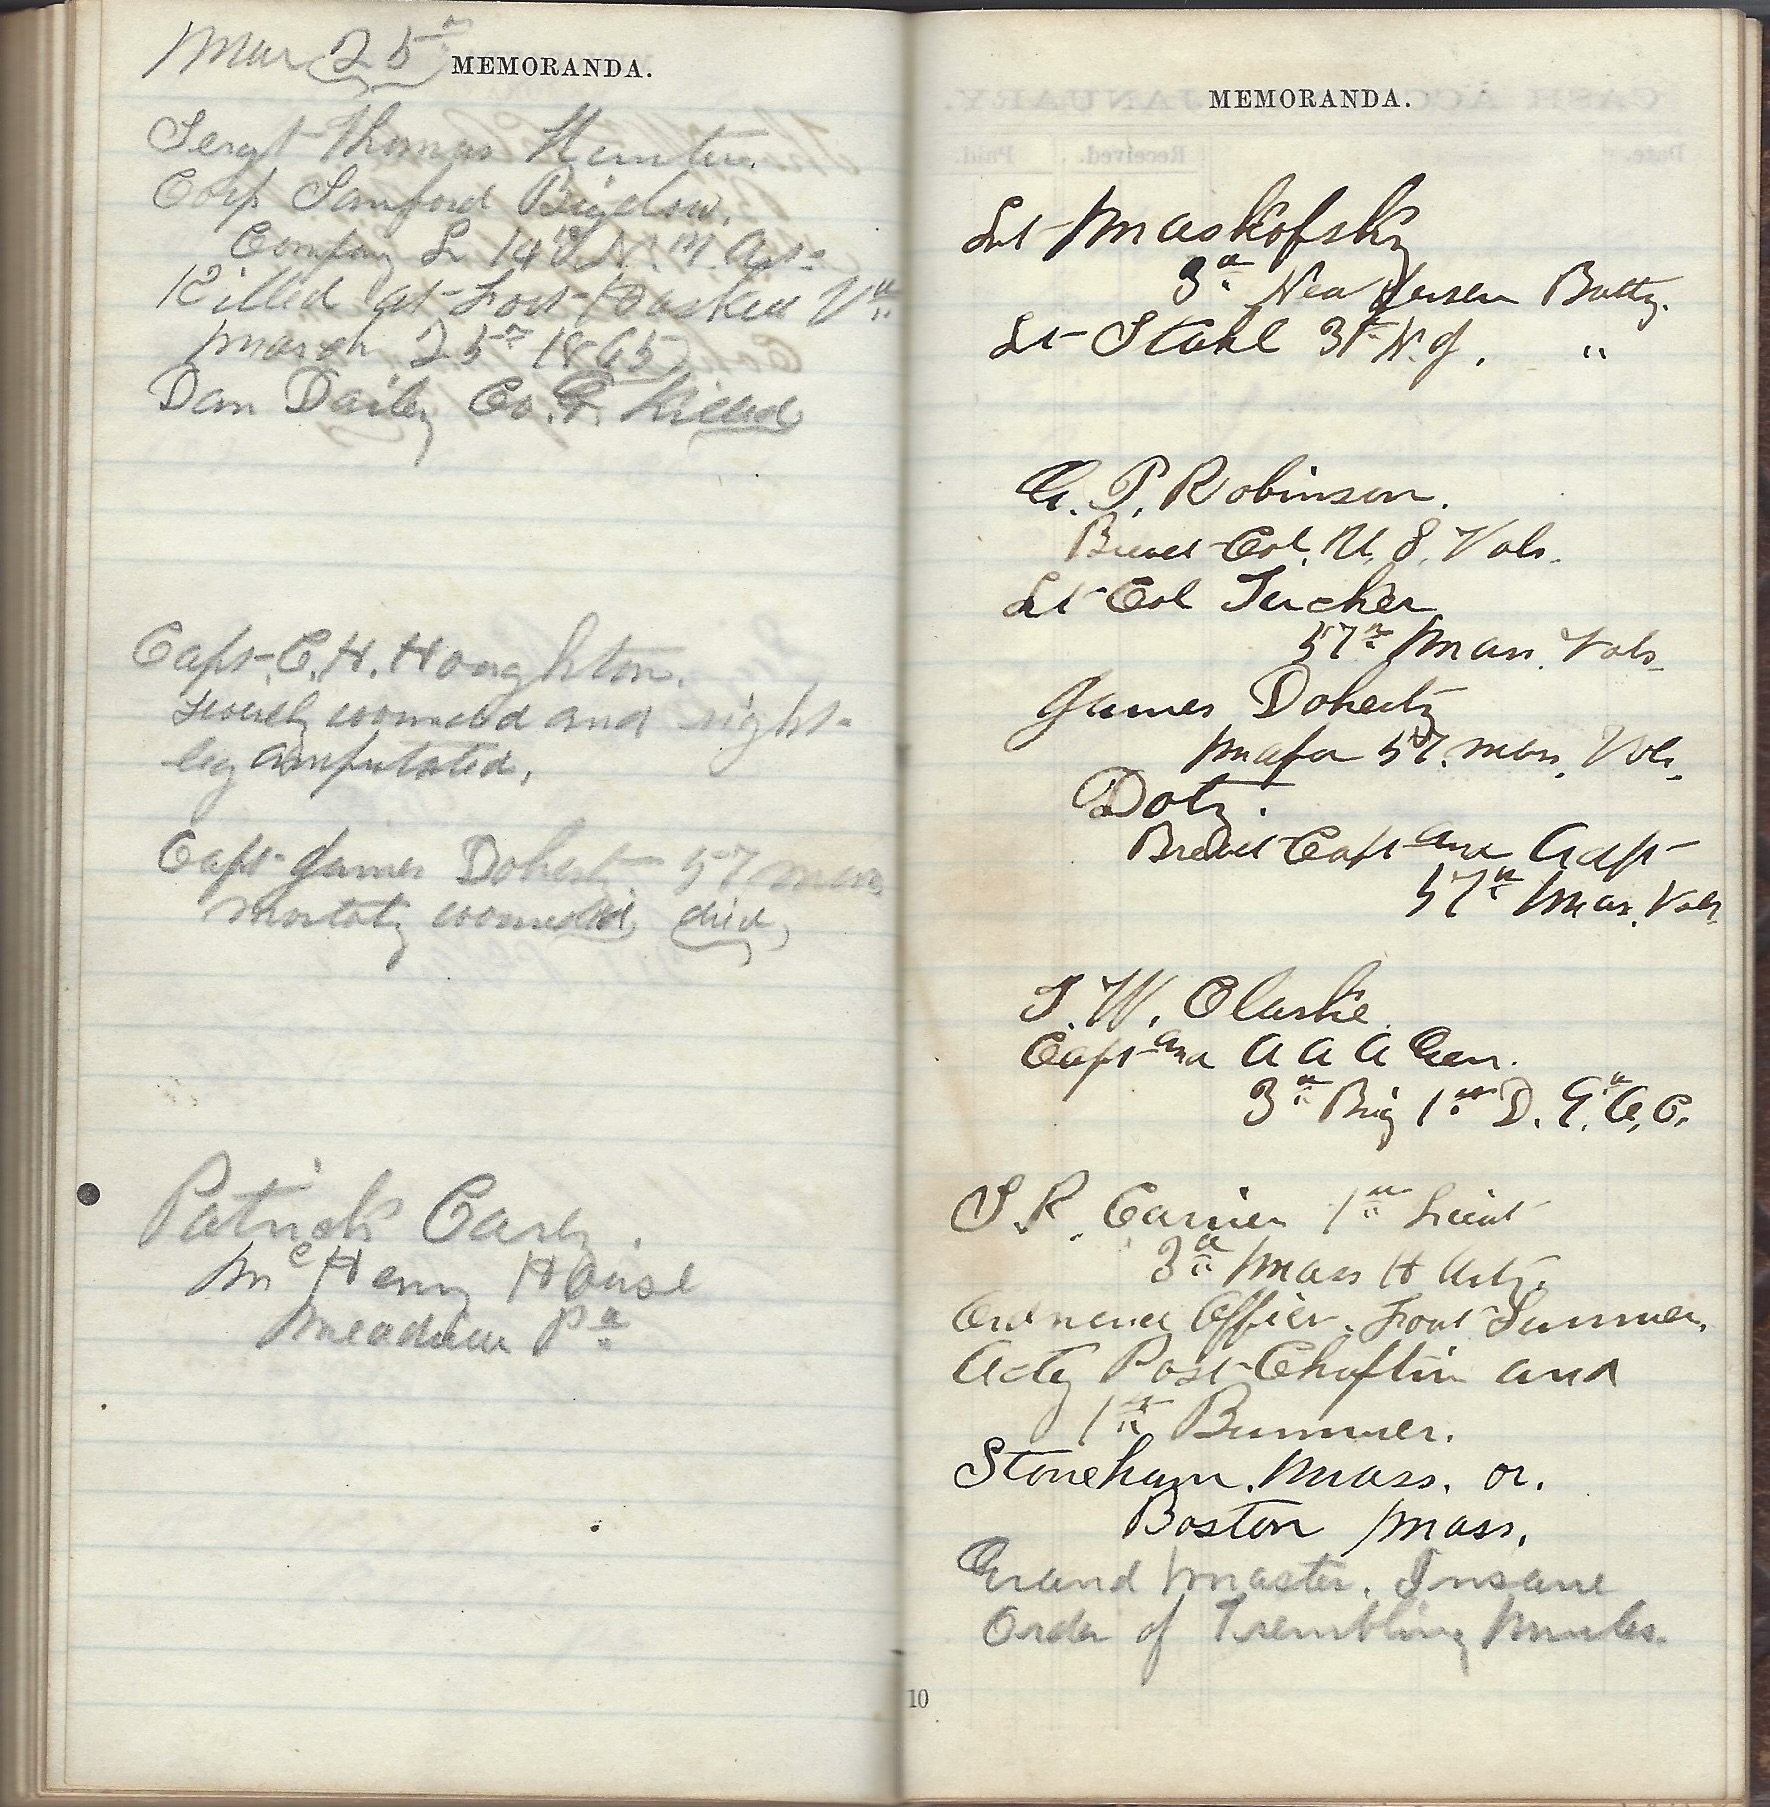 Mar 25th
MEMORANDA.
Sergt Thomas Hunter.
Corp Sanford Bigelow.
Company L 14th N. Y. Art.
Killed at Fort Haskell Va
March 25th 1865
Dan Dailey Co. F Killed
Capt. C. H. Houghton.
severely wounded and right
leg amputated.
Capt James Doherty 57 Mass
Mortaly wounded, died,
Patrick Carly.
McHenry House
Meadville Pa
MEMORANDA.
Lt Maskofsky
3d New Jersey Batty.
Lt Stahl 3d N. J. "
G. P. Robinson.
Brevet Col. U. S. Vols.
Lt Col Tucker
57th Mass. Vols
James Doherty
Major 57. Mass. Vols.
Doty.
Brevet Capt and Adjt
57th Mass. Vols
T. W. Clarke.
Capt and A A A Gen.
3d Brig 1st D. 9th A. C.
S. R. Carrier 1st Lieut
3d Mass H Arty.
Ordnance Officer. Front Sumner,
Actg Post Chaftin and
1st Bummer.
Stoneham. Mass. or.
Boston Mass.
Grand Master. Insane
Order of Trembling Mules.
10